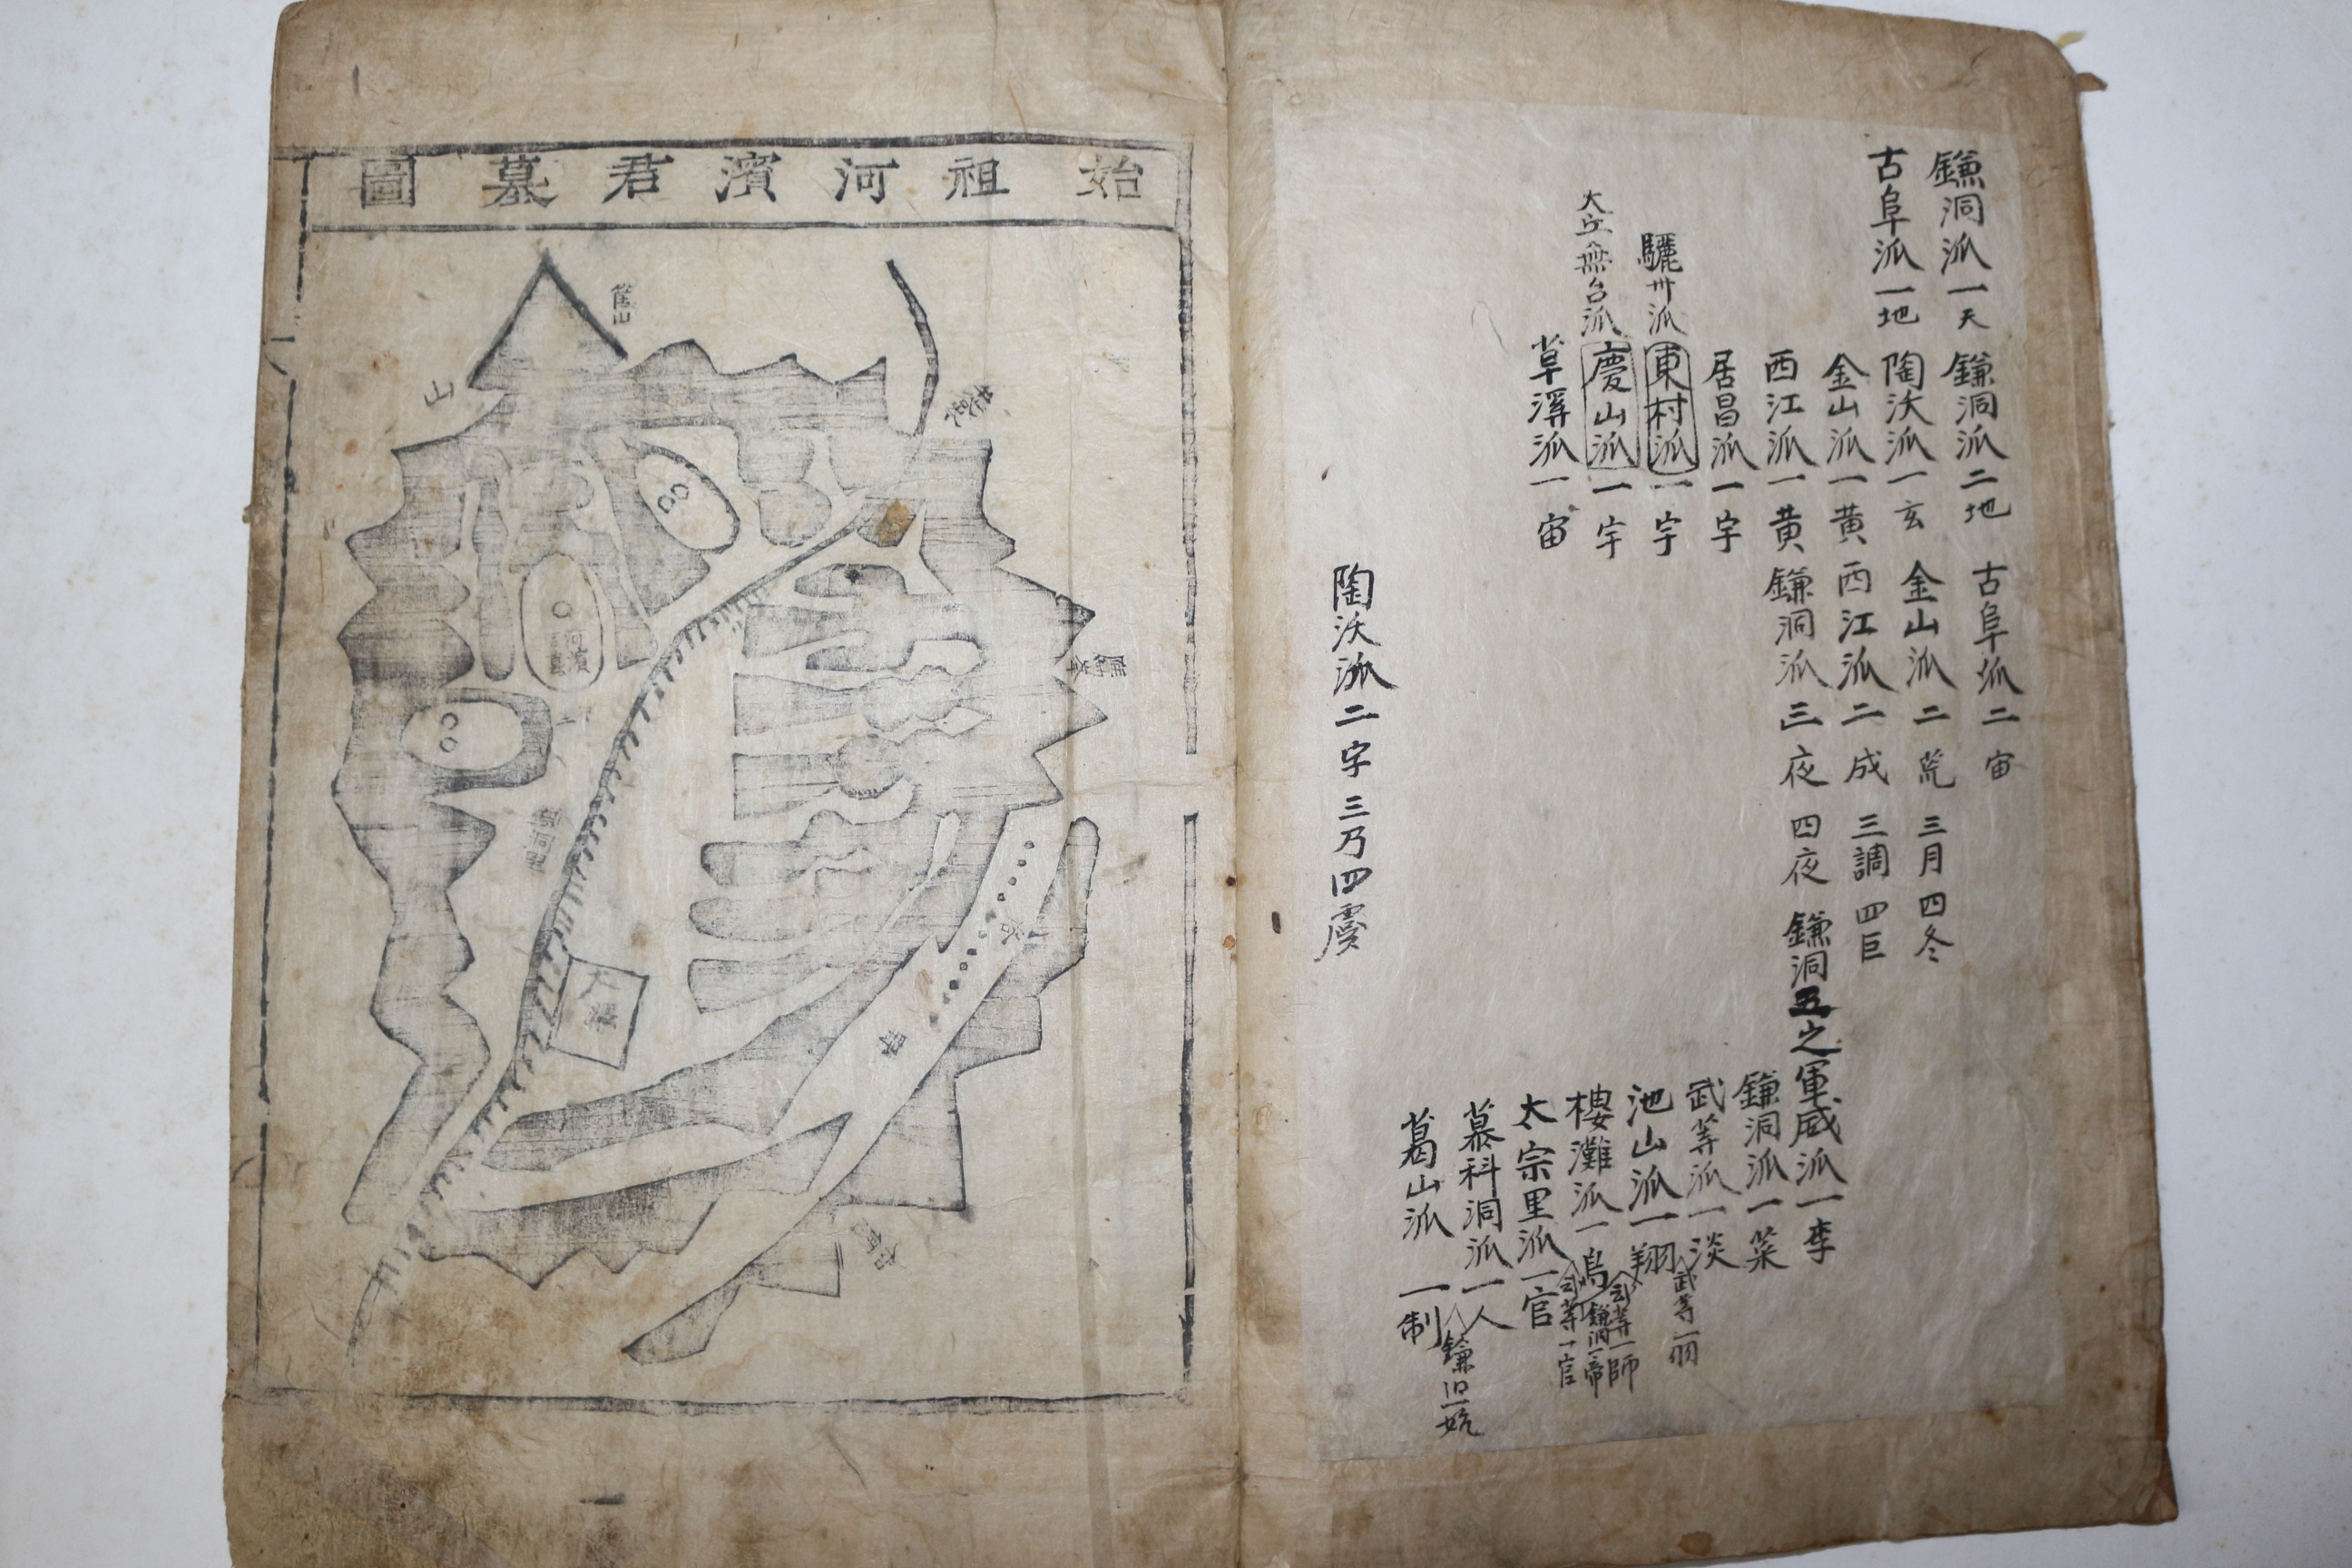 鎌洞派一天
古阜派一地
鎌洞派二地
陶沃派一玄
金山派一黄
西江派一黄
居昌派一宇
驪卅派
東村派一宇
慶山派一宇
草溪派一宙
古阜派二宙
金山派二荒 三月 四冬
西江派二成 三調 四巨
鎌洞派三夜 四夜
鎌洞五之軍威派一李
鎌洞派一菜
武等派一淡
武等一羽
池山派一翔
樓灘派一鳥
鎌洞一帝
太宗里派一官
慕科洞派一人
葛山派一制
陶沃派二字 三乃 四虞
始祖河濱君墓圖
山
河濱
大